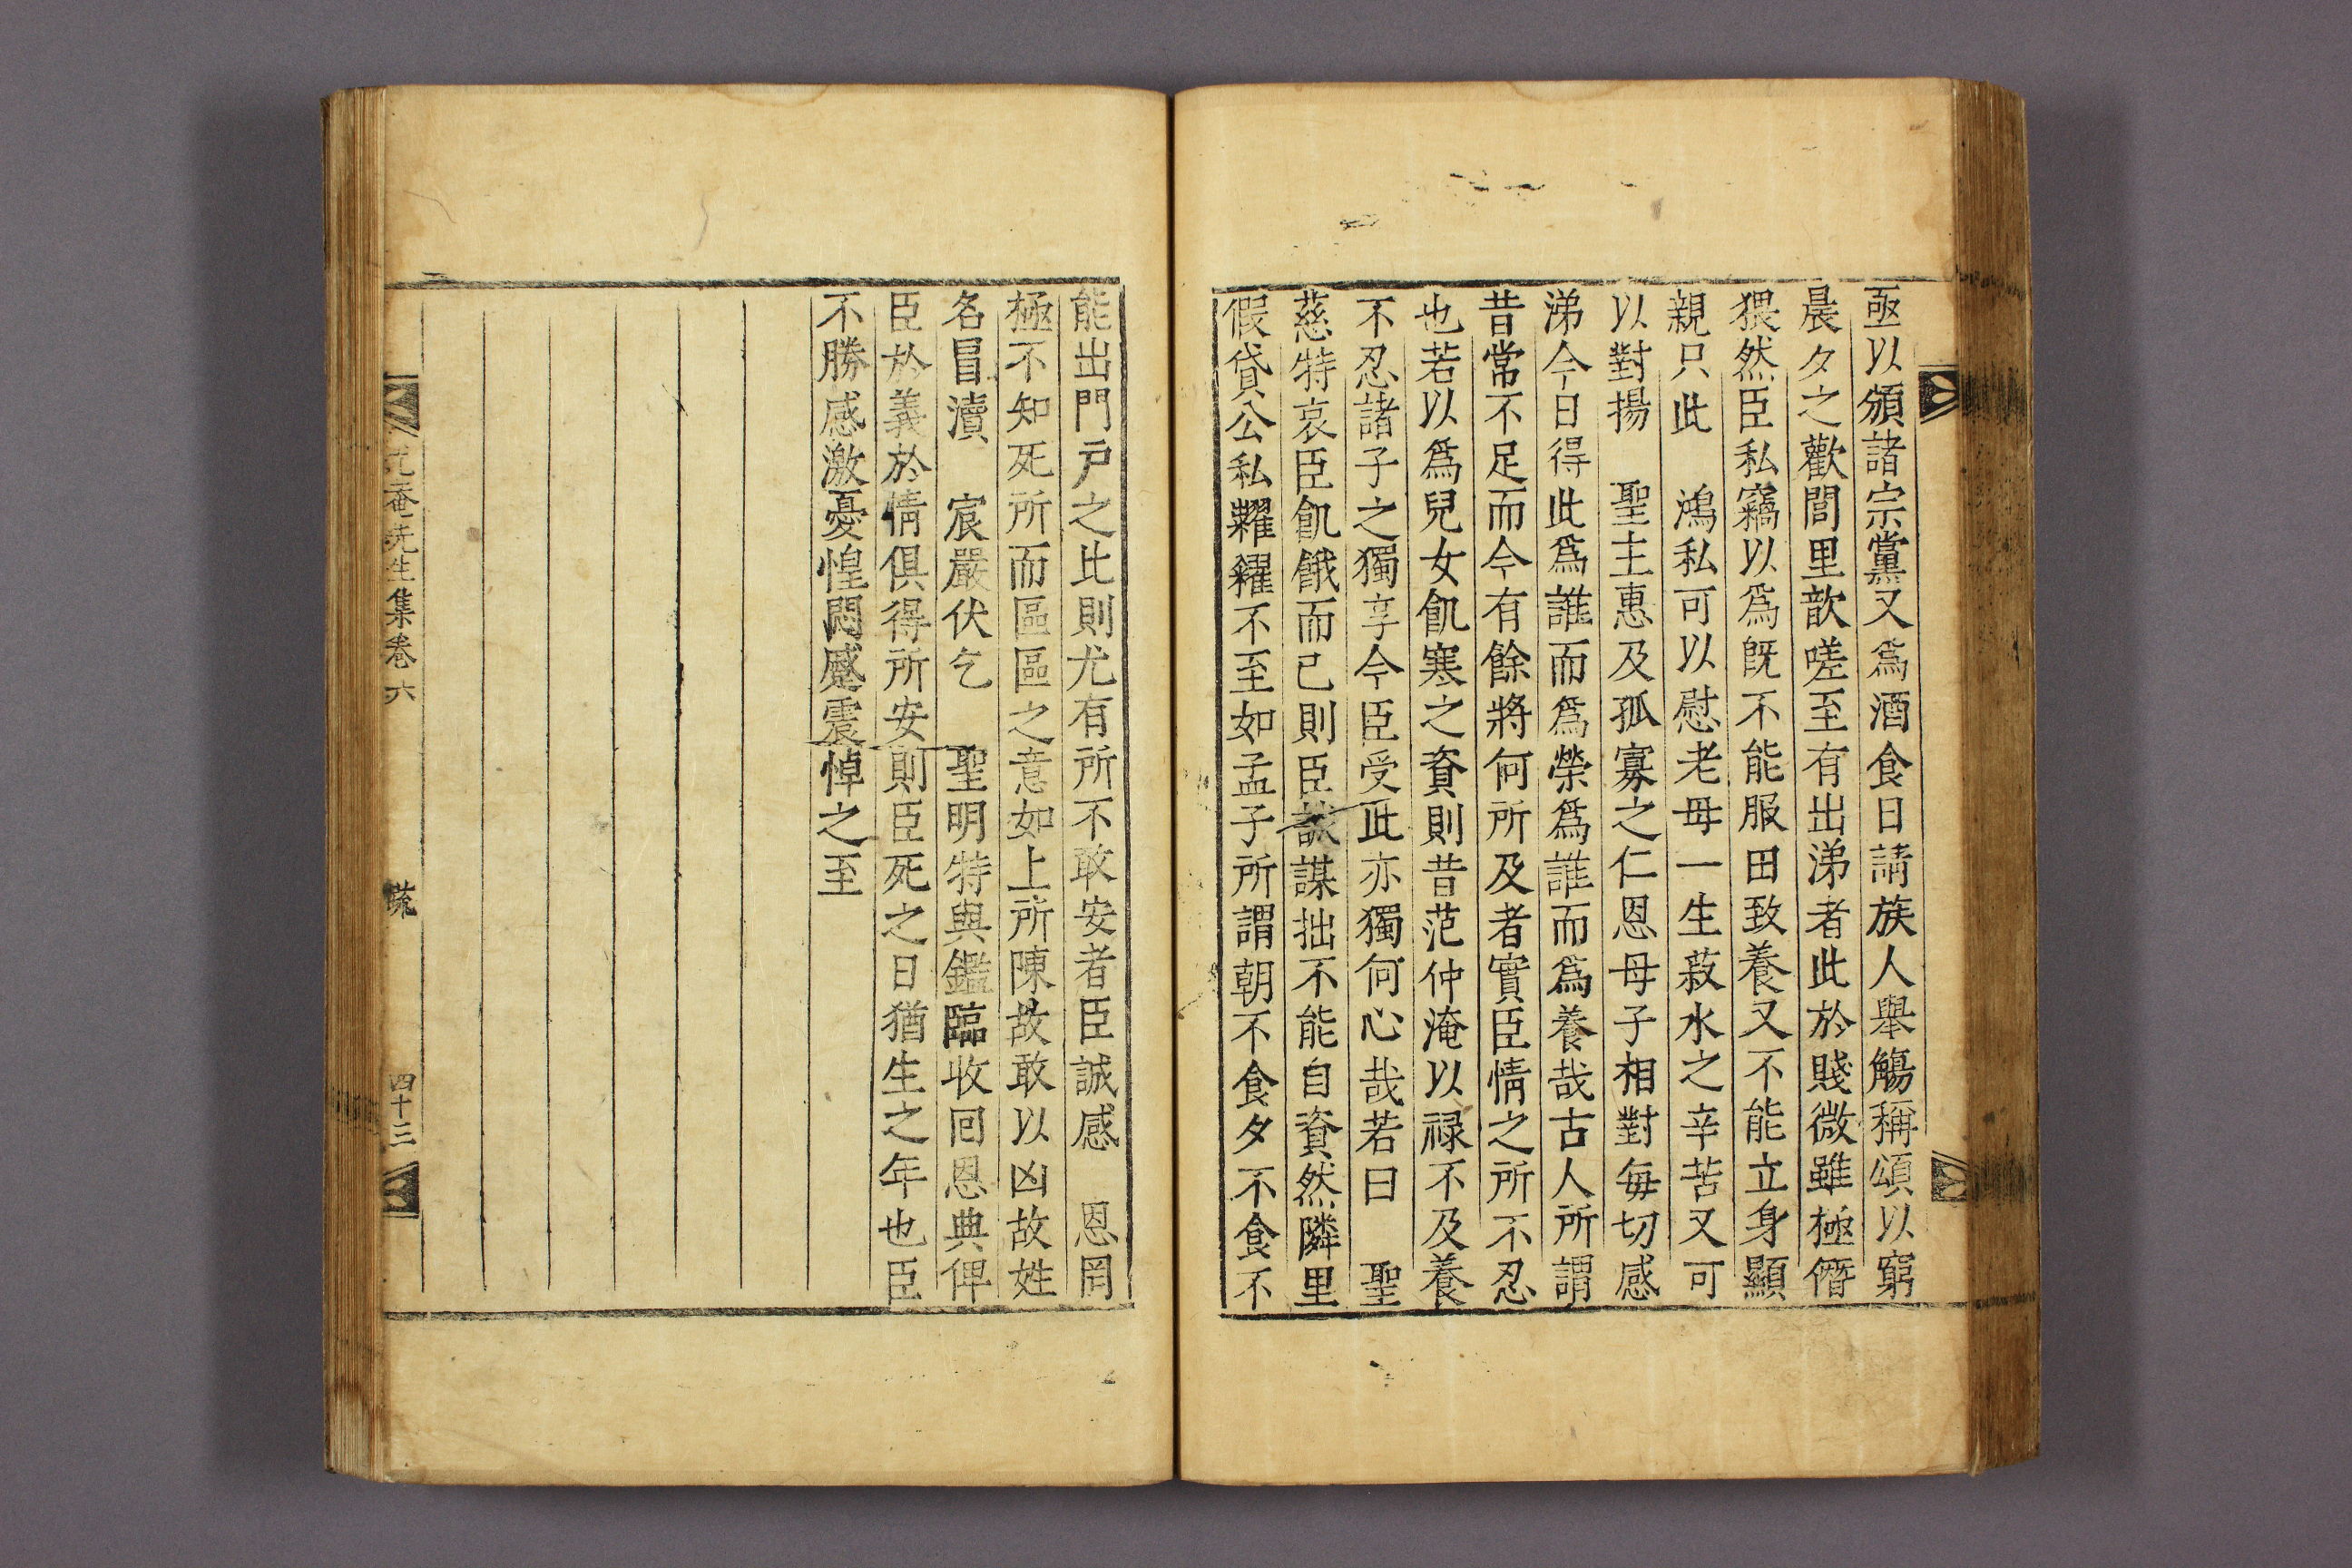 亟以頒諸宗黨又爲酒食日請族人舉觴稱頌以窮
晨夕之歡閭里歆嗟至有出涕者此於賤微雖極僭
猥然臣私竊以爲旣不能服田致養又不能立身顯
親只此　鴻私可以慰老母一生菽水之辛苦又可
以對揚　聖主惠及孤寡之仁恩母子相對每切感
涕今日得此爲誰而爲榮爲誰而爲養哉古人所謂
昔常不足而今有餘將何所及者實臣情之所不忍
也若以爲兒女飢寒之資則昔范仲淹以祿不及養
不忍諸子之獨享今臣受此亦獨何心哉若曰　聖
慈特哀臣飢餓而已則臣誠謀拙不能自資然隣里
假貸公私糶糴不至如孟子所謂朝不食夕不食不
能出門戶之比則尤有所不敢安者臣誠感　恩罔
極不知死所而區區之意如上所陳故敢以凶故姓
名冒瀆　宸嚴伏乞　聖明特與鑑臨收回恩典俾
臣於義於情俱得所安則臣死之日猶生之年也臣
不勝感激憂惶悶蹙震悼之至
菴先生集卷六　疏　四十三